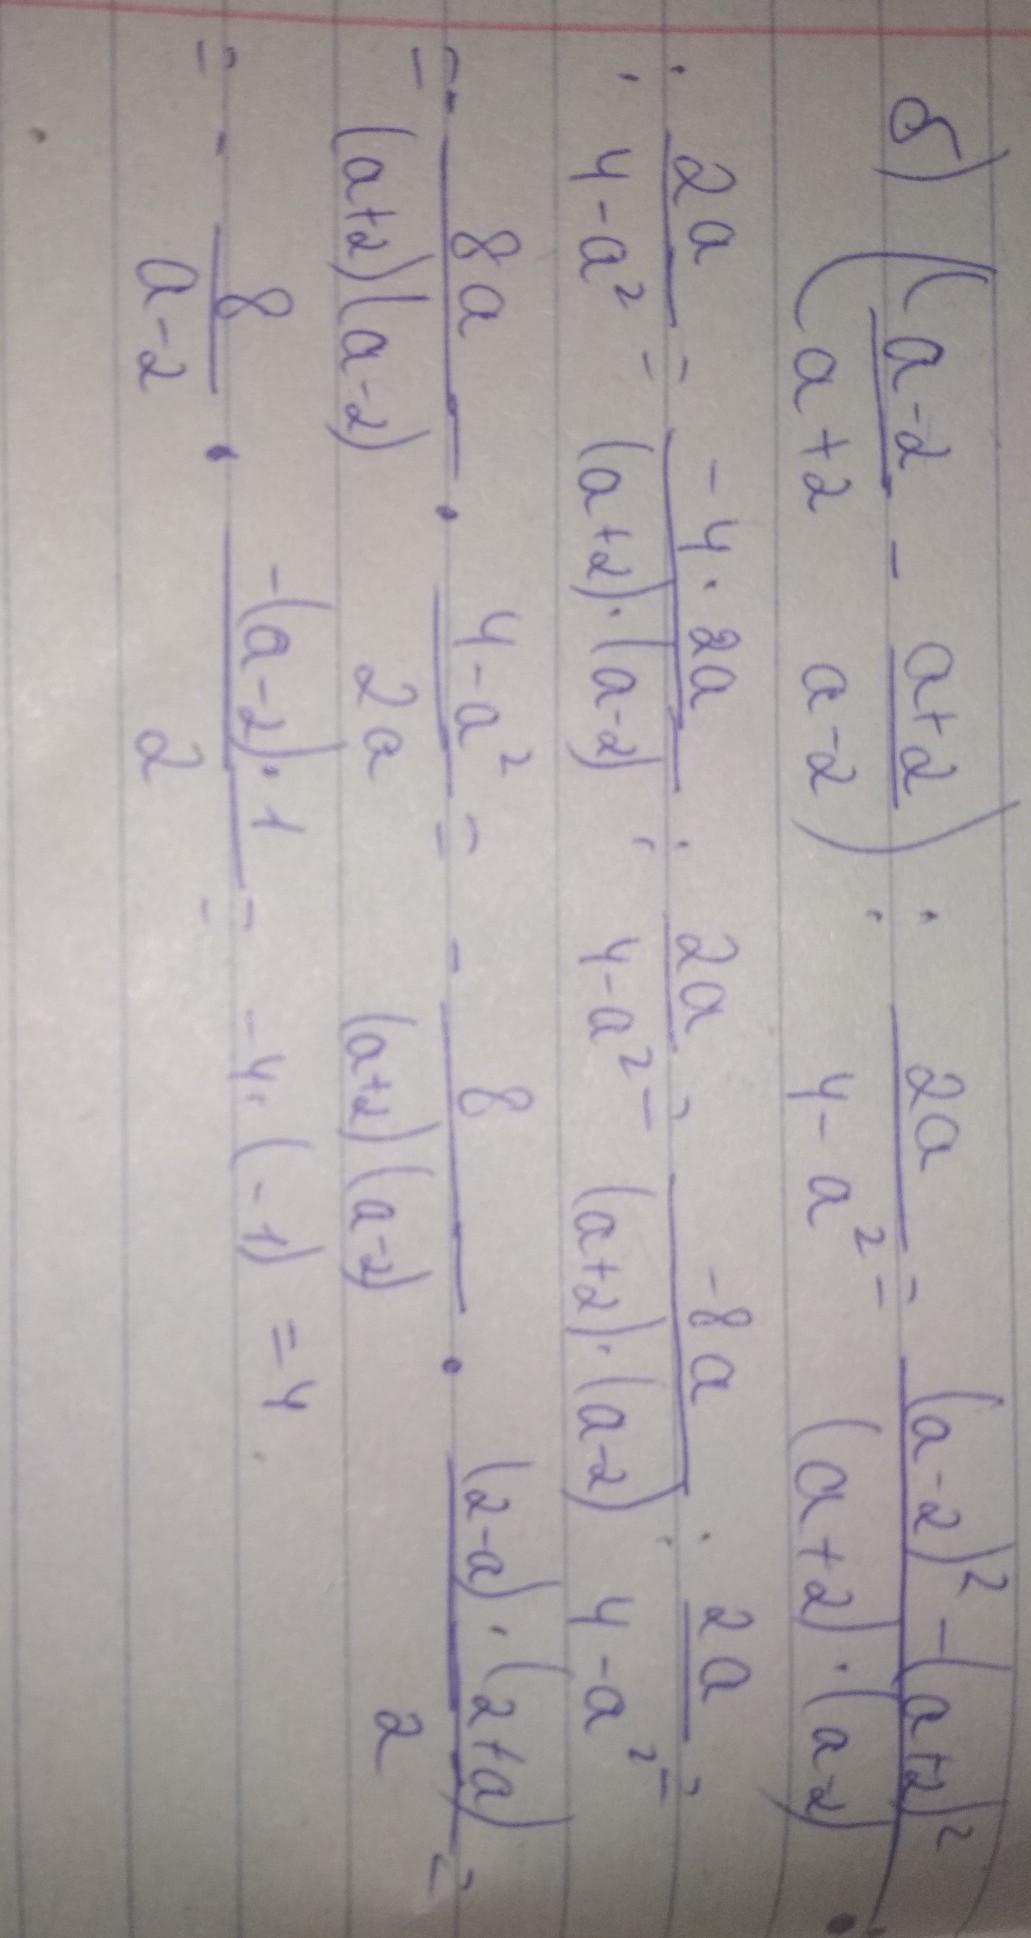 б) ( (a-2)/(a+2) - (a+2)/(a-2) ) : 2a/(4-a²) = ((a-2)² - (a+2)²)/((a+2)·(a-2)) :
: 2a/(4-a²) = (-4·2a)/((a+2)·(a-2)) : 2a/(4-a²) = (-8a)/((a+2)·(a-2)) : 2a/(4-a²) =
= - 8a/((a+2)(a-2)) · (4-a²)/(2a) = - 8/((a+2)(a-2)) · ((2-a)·(2+a))/2 =
= - 8/(a-2) · (-(a-2)·1)/2 = -4·(-1) = 4.